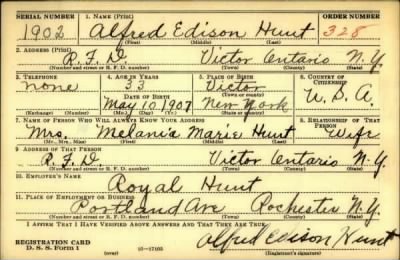 SERIAL NUMBER 1. NAME (Print) ORDER NUMBER
1902 Alfred Edison Hunt 328
(First) (Middle) (Last)
2. ADDRESS (Print)
R.F.D. Victor Ontario N.Y.
(Number and street or R. F. D. number) (Town) (County) (State)
3. TELEPHONE 4. AGE IN YEARS 5. PLACE OF BIRTH 6. COUNTRY OF CITIZENSHIP
none 33 Victor
DATE OF BIRTH (Town or county)
May 10 1907 New York U.S.A.
(Exchange) (Number) (Mo.) (Day) (Yr.) (State or country)
7. NAME OF PERSON WHO WILL ALWAYS KNOW YOUR ADDRESS 8. RELATIONSHIP OF THAT PERSON
Mrs. Melania Marie Hunt Wife
(Mr., Mrs., Miss) (First) (Middle) (Last)
9. ADDRESS OF THAT PERSON
R.F.D. Victor Ontario N.Y.
(Number and street or R. F. D. number) (Town) (County) (State)
10. EMPLOYER'S NAME
Royal Hunt
11. PLACE OF EMPLOYMENT OR BUSINESS
Portland Ave Rochester N.Y.
(Number and street or R. F. D. number) (Town) (County) (State)
I AFFIRM THAT I HAVE VERIFIED ABOVE ANSWERS AND THAT THEY ARE TRUE.
REGISTRATION CARD
D. S. S. Form 1 (over) 16-17105 Alfred Edison Hunt
(Registrant's signature)